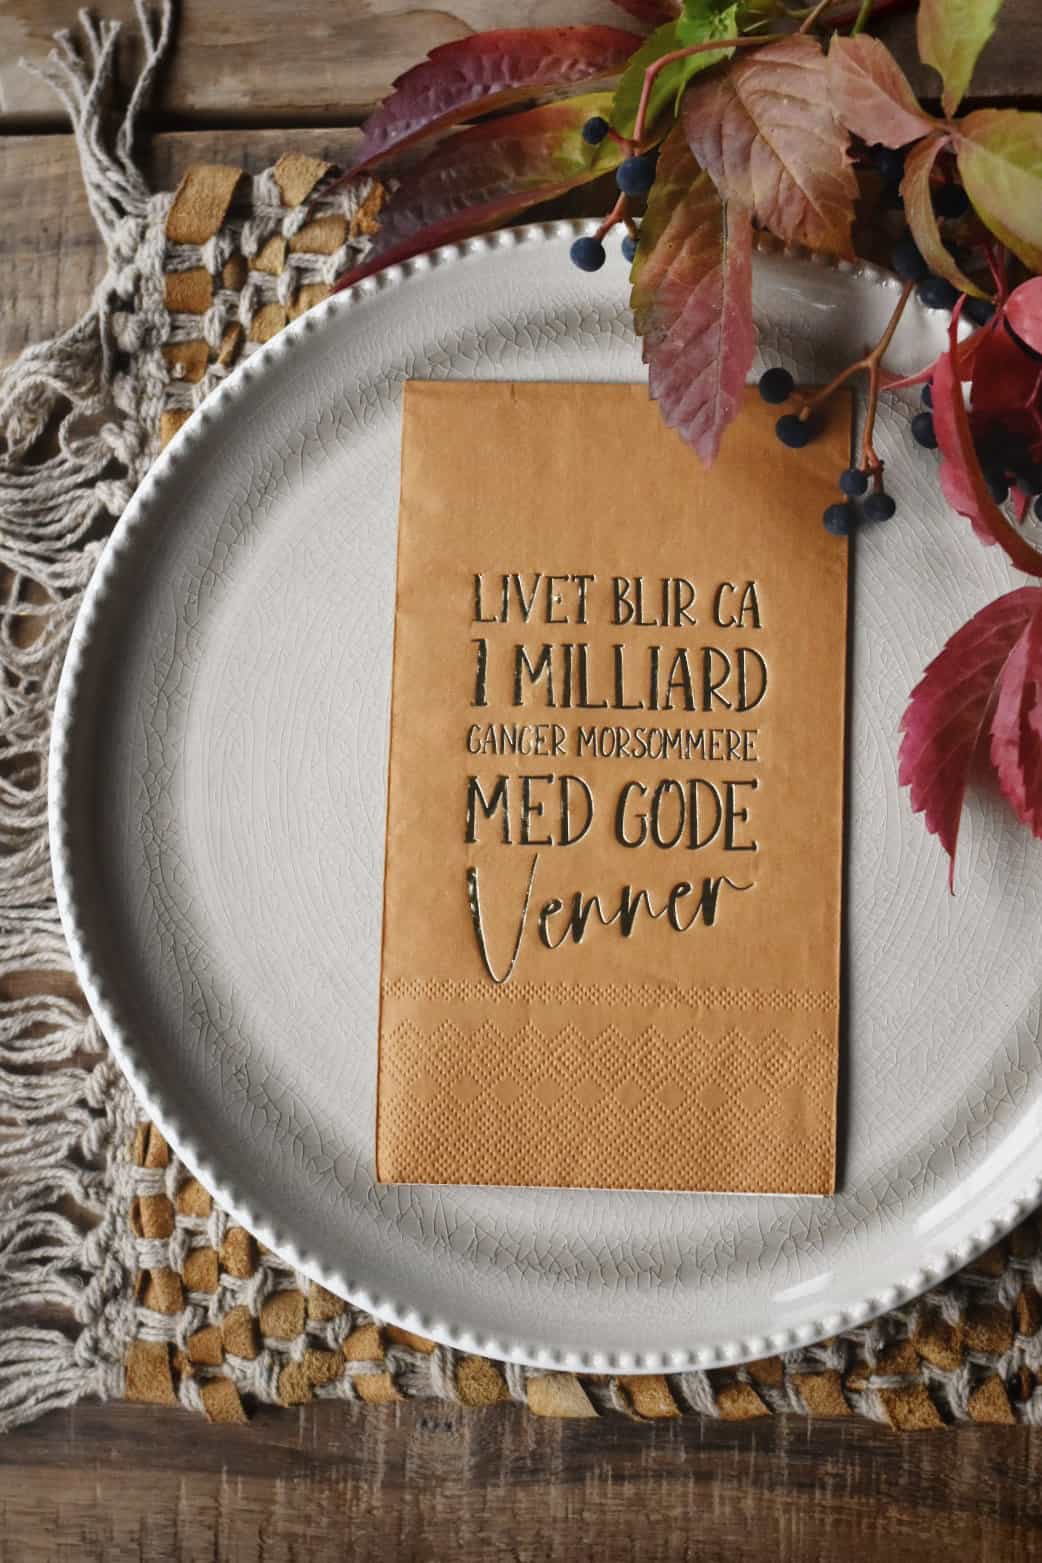 LIVET BLIR CA
1 MILLIARD
GANGER MORSOMMERE
MED GODE
Venner